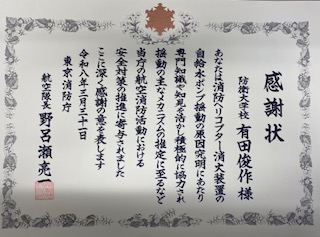 感謝状
防衛大学校 有田俊作 様
あなたは消防ヘリコプター消火装置の
自給水ポンプ振動の原因究明にあたり
専門知識や知見を活かし積極的に協力され
振動の主なメカニズムの推定に至るなど
当庁の航空消防活動における
安全対策の推進に寄与されました
ここに深く感謝の意を表します
令和八年三月二十一日
東京消防庁
航空隊長 野呂瀬亮一